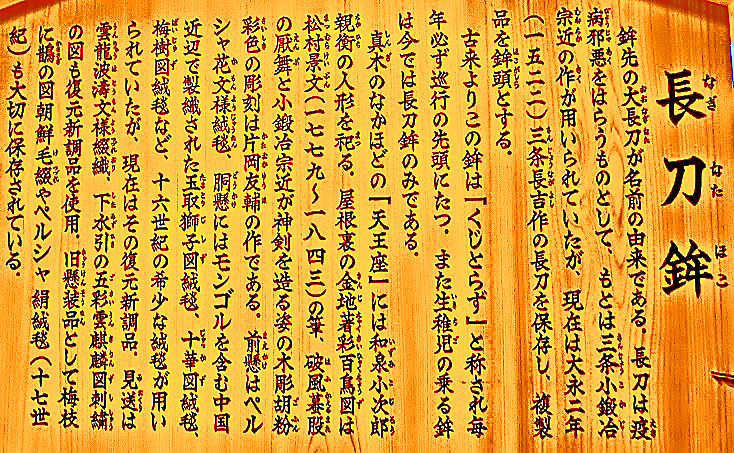 長刀鉾
なぎなたほこ
鉾先の大長刀が名前の由来である。長刀は疫
病邪悪をはらうものとして、もとは三条小鍛冶
宗近の作が用いられていたが、現在は大永二年
(一五二二)三条長吉作の長刀を保存し、複製
品を鉾頭とする。
古来よりこの鉾は『くじとらず』と称され毎
年必ず巡行の先頭にたつ。また生稚児の乗る鉾
は今では長刀鉾のみである。
真木のなかほどの『天王座』には和泉小次郎
親衡の人形を祀る。屋根裏の金地著彩百鳥図は
松村景文(一七七九〜一八四三)の筆、破風蟇股
の厭舞と小鍛冶宗近が神剣を造る姿の木彫胡粉
彩色の彫刻は片岡友輔の作である。前懸はペル
シャ花文様絨毯、胴懸にはモンゴルを含む中国
近辺で製織された玉取獅子図絨毯、十華図絨毯、
梅樹図絨毯など、十六世紀の希少な絨毯が用い
られていたが、現在はその復元新調品。見送は
雲龍波濤文様綴織、下水引の五彩雲麒麟図刺繍
の図も復元新調品を使用。旧懸装品として梅枝
に鵲の図朝鮮毛綴やペルシャ絹絨毯(十七世
紀)も大切に保存されている。